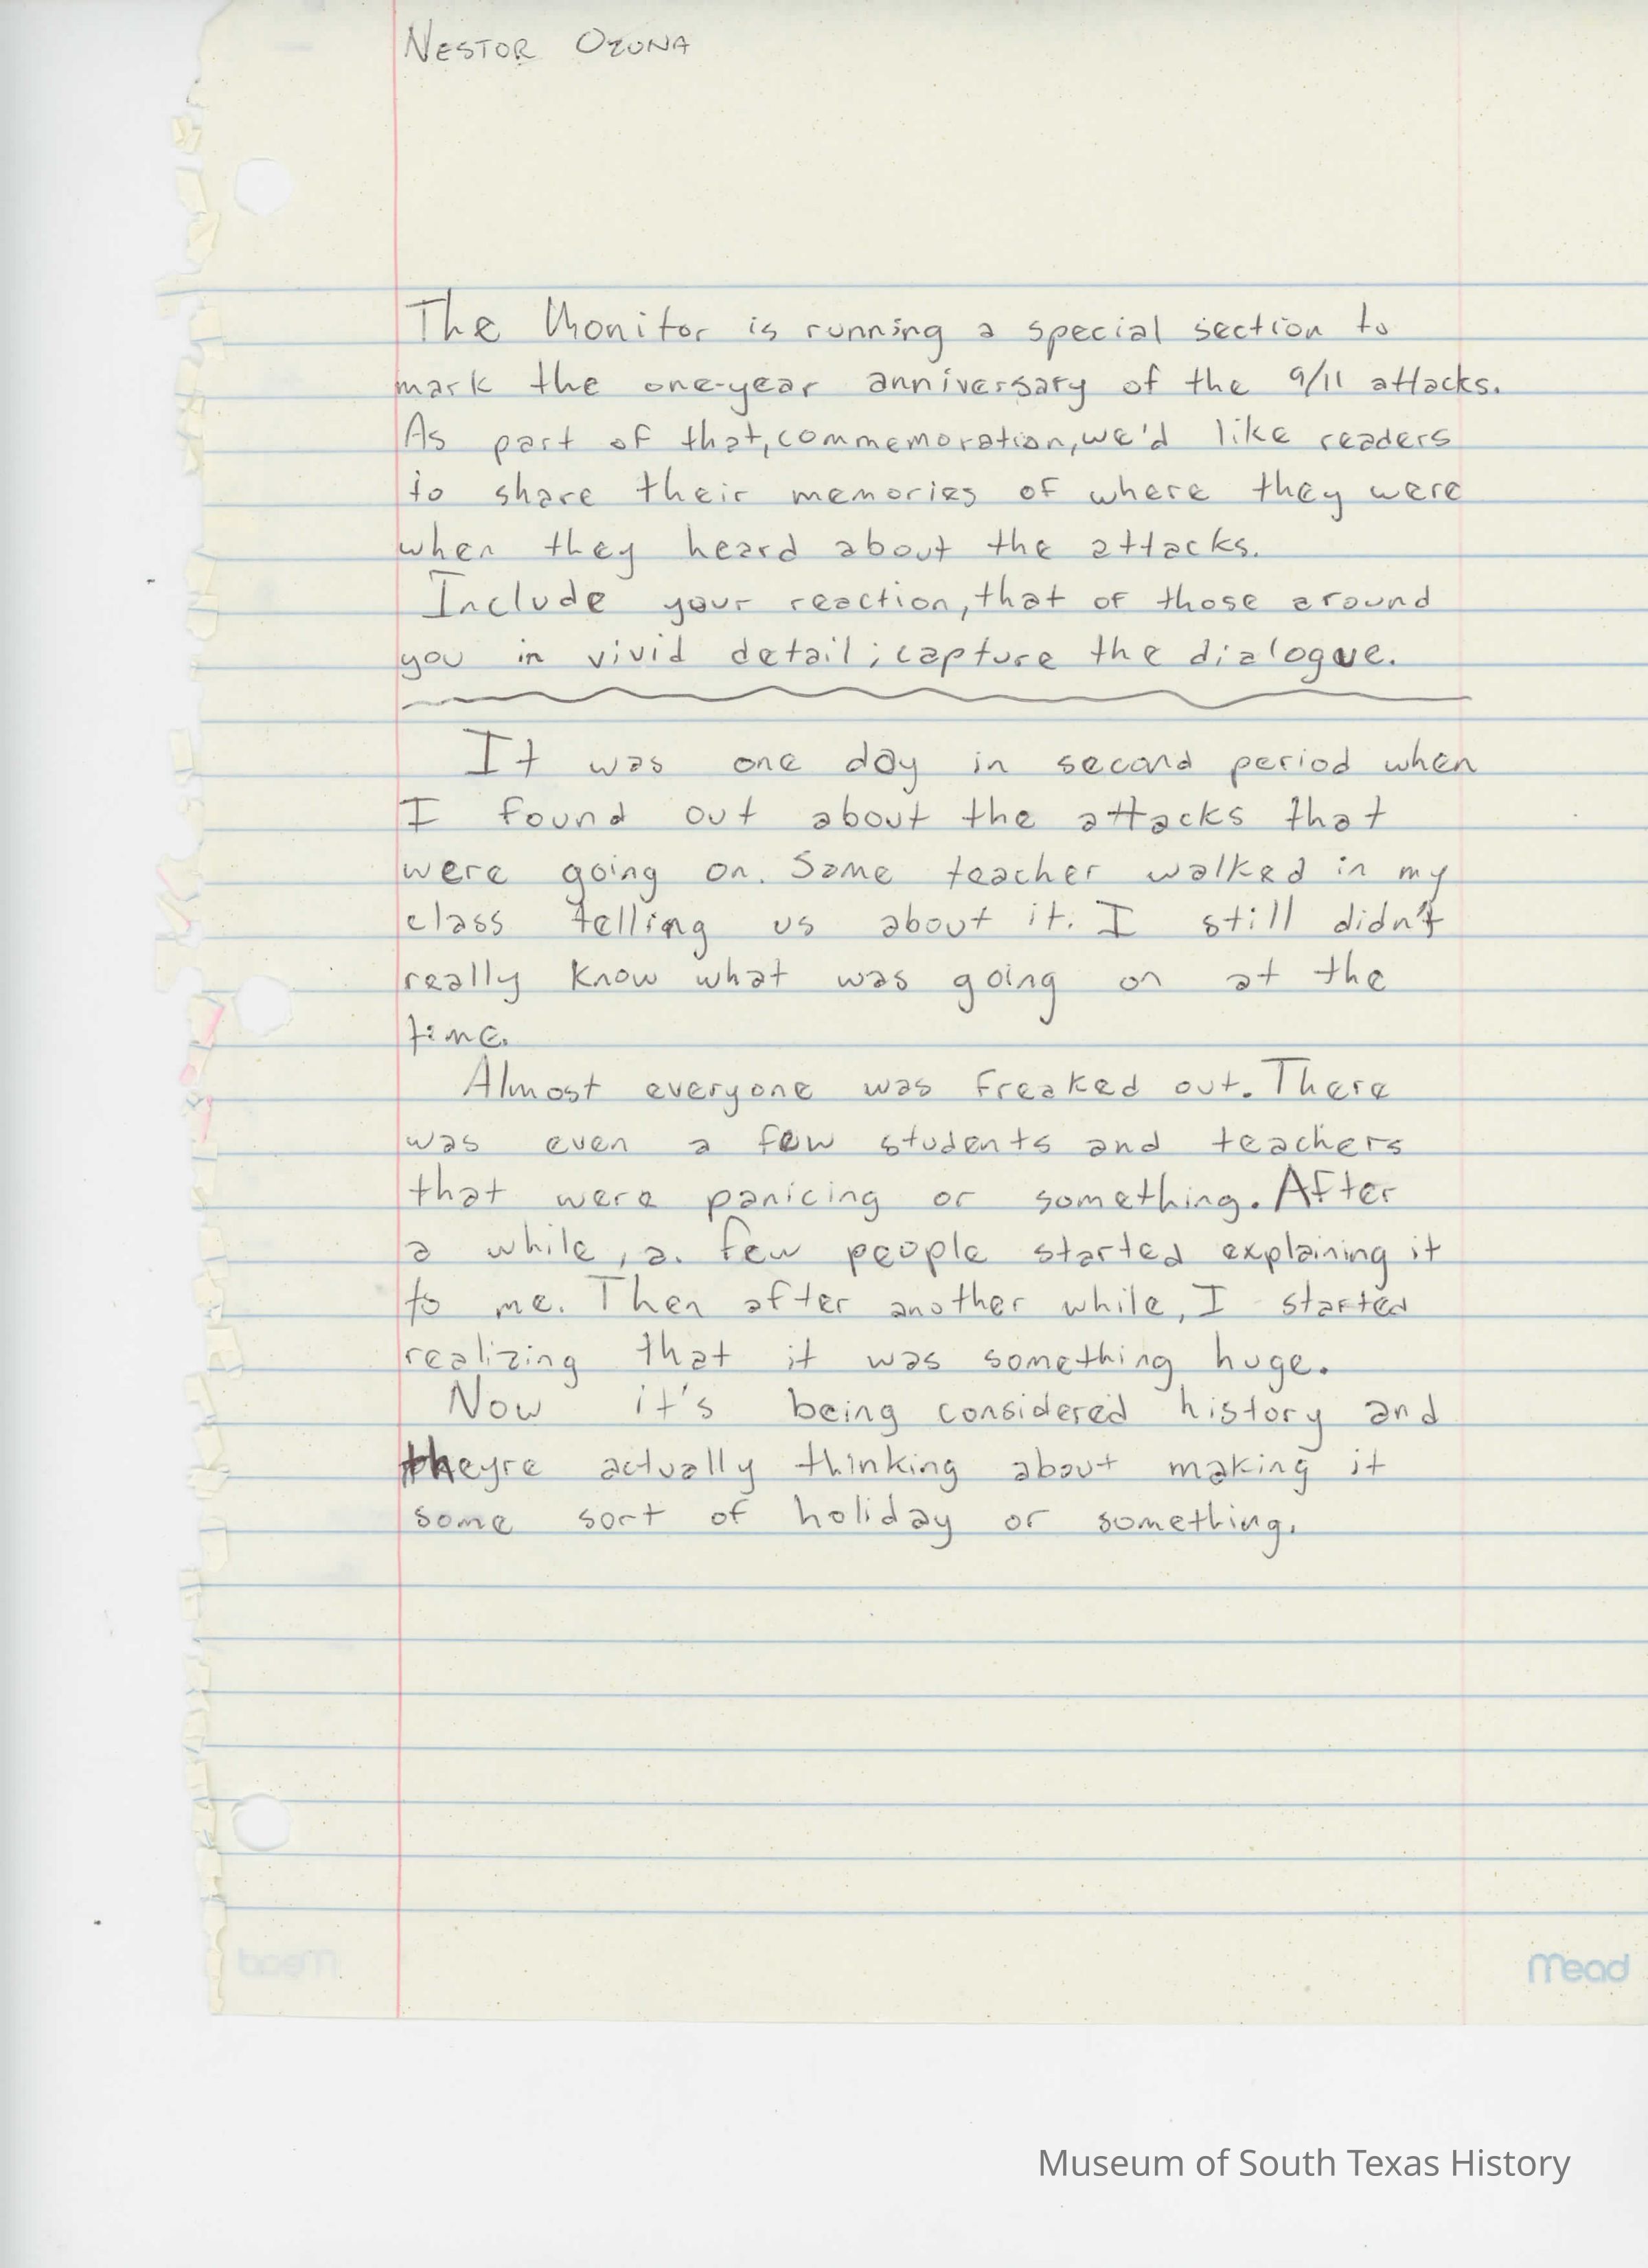 NESTOR OZUNA
The Monitor is running a special section to
mark the one-year anniversary of the 9/11 attacks.
As part of that, commemoration, we'd like readers
to share their memories of where they were
when they heard about the attacks.
Include your reaction, that of those around
you in vivid detail; capture the dialogue.
It was one day in second period when
I found out about the attacks that
were going on. Some teacher walked in my
class telling us about it. I still didn't
really know what was going on at the
time.
Almost everyone was freaked out. There
was even a few students and teachers
that were panicing or something. After
a while, a few people started explaining it
to me. Then after another while, I started
realizing that it was something huge.
Now it's being considered history and
theyre actually thinking about making it
some sort of holiday or something.
Mead
Museum of South Texas History